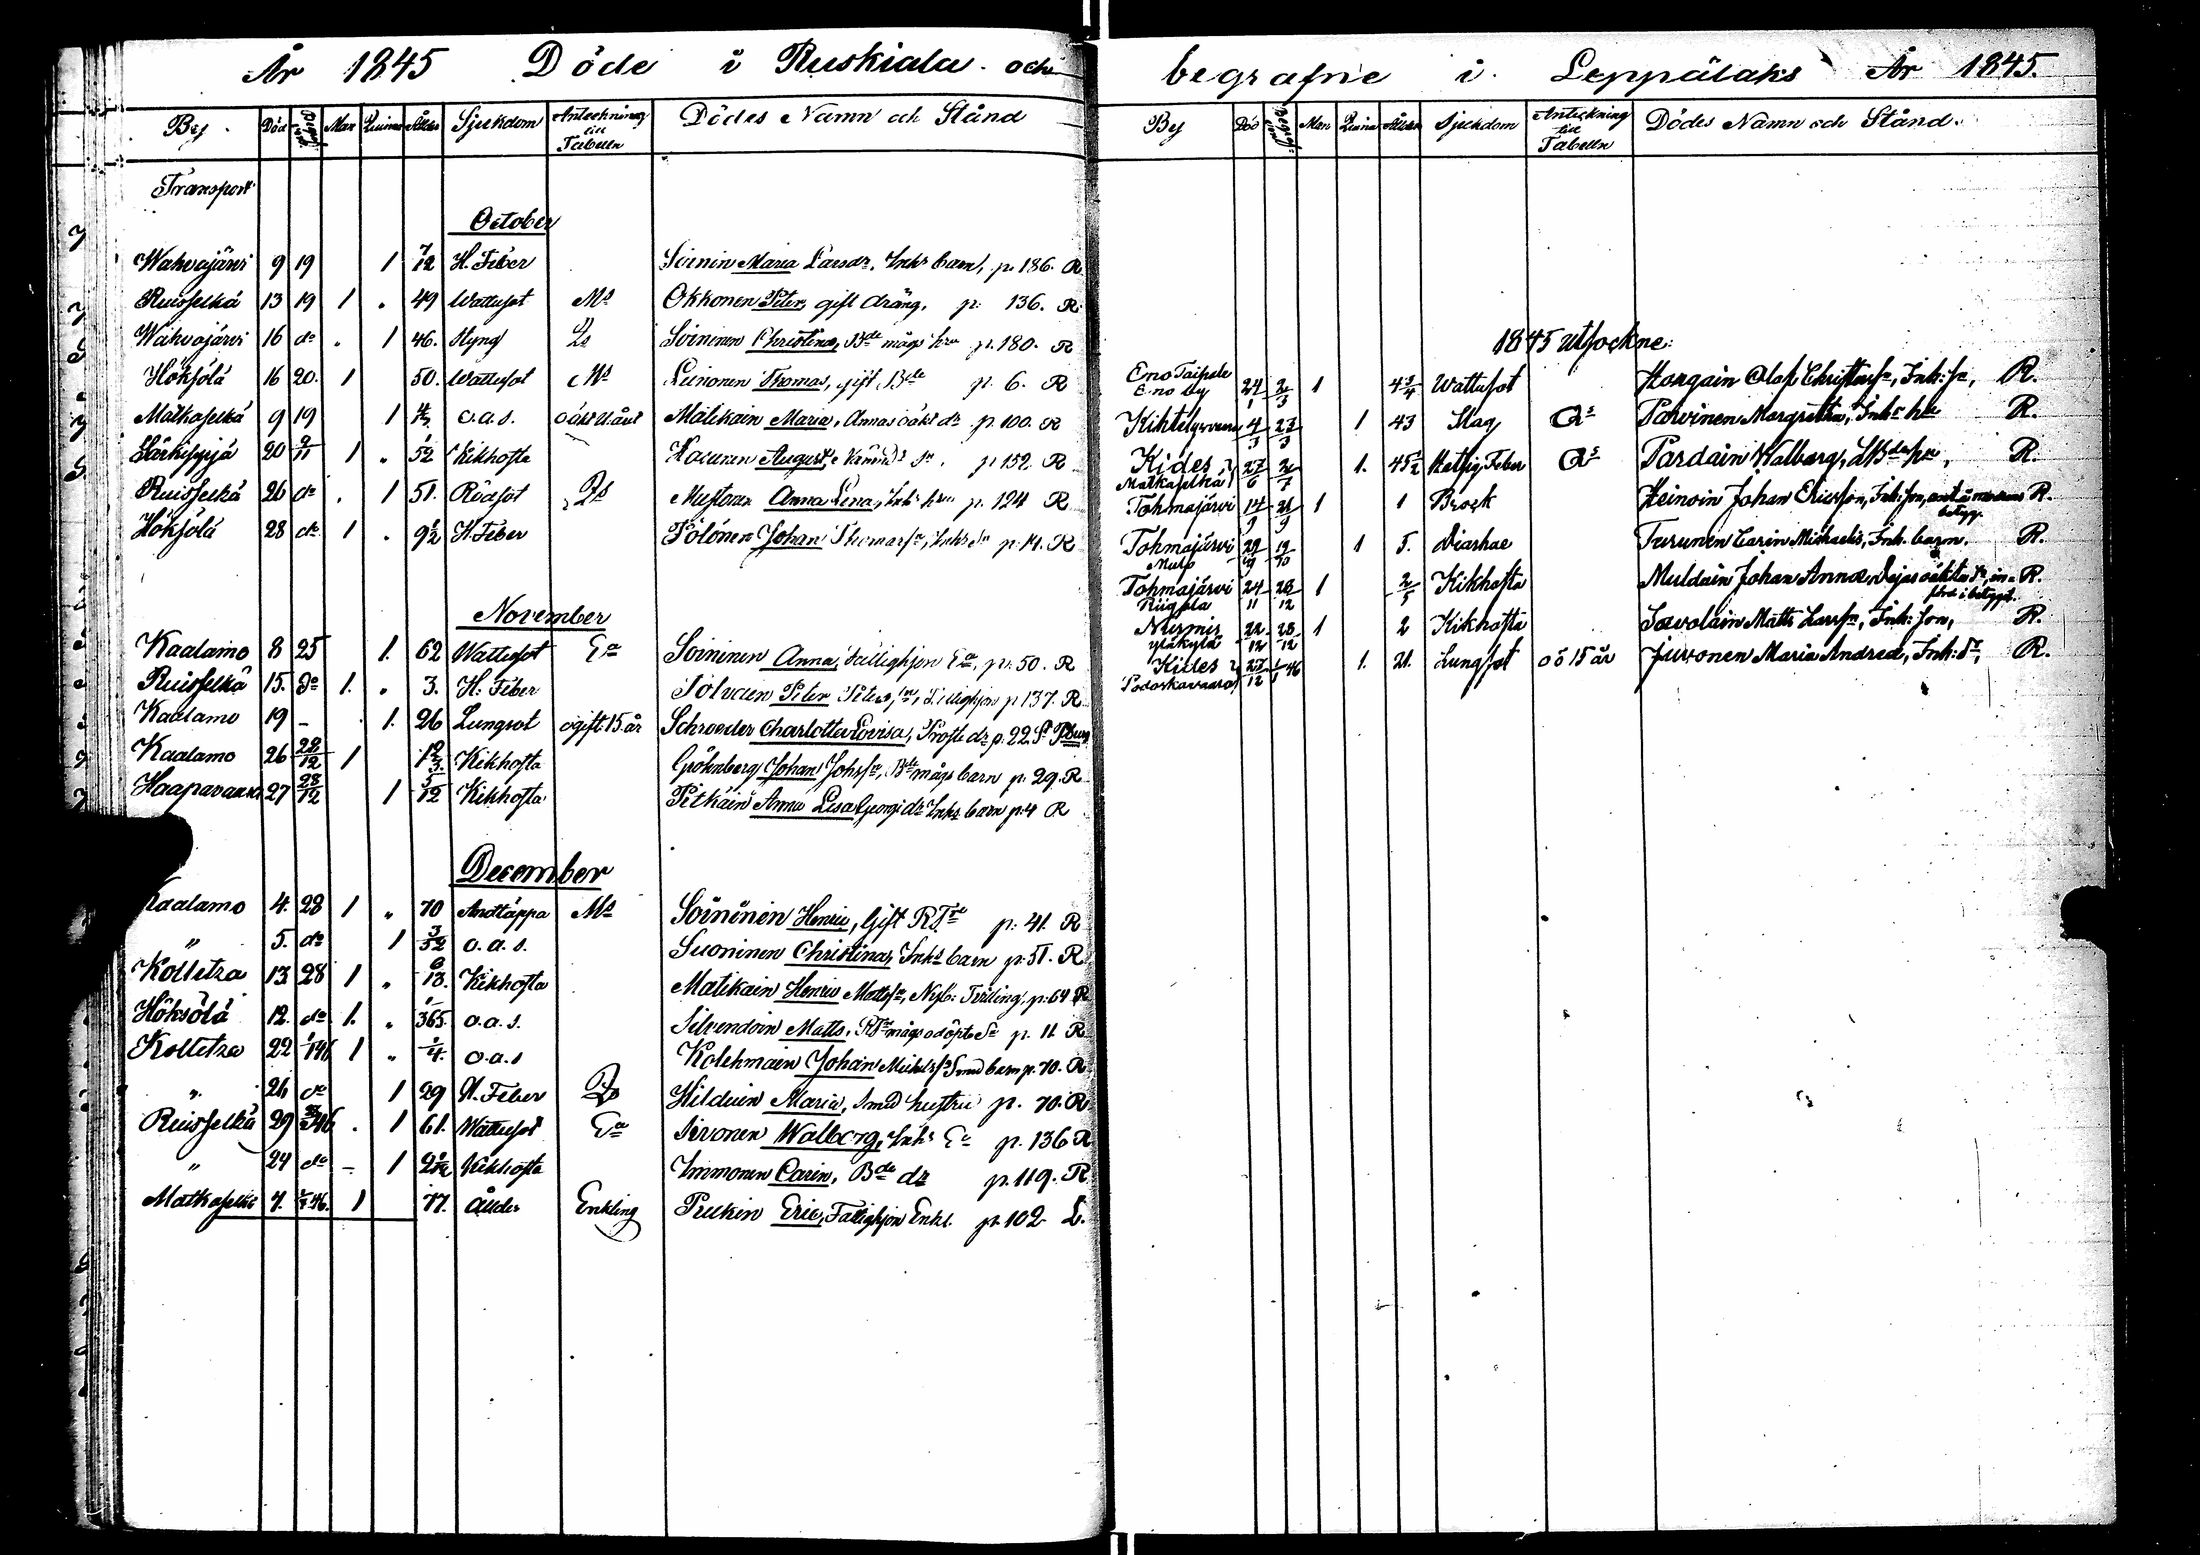 År 1845 Döde i Ruskiala och
By Död Begrafven Man Quinna Ålder Sjukdom Anteckning till Tabellen Dödes Namn och Stånd
Transport
October
Wahvajärvi 9 19 1 7/12 H. Feber Soinin Maria Larsdr, Inhs barn, p. 186. R
Ruisselkä 13 19 1 " 49 Wattusot Ms Okkonen Peter, gift dräng, p. 136. R
Wahvajärvi 16 do " 1 46. Styng Qs Soininen Christina, Bde mågs hru p. 180. R
Höksölä 16 20. 1 50. Wattusot Ms Leinonen Thomas, gift Bde p. 6. R
Matkaselkä 9 19 1 o.a.s. Matikain Maria, Annas oäkt dr p. 100. R
20 9/11 1 " 1/52 Kikhosta August, p 152. R
Ruisselkä 26 do . 1 51. Rödsot Qs Anna Lena, Inhs hru p. 124 R
Höksölä 28 do 1 " 9 1/2 H. Feber Pölönen Johan Thomass, Inhs Sn p. 14. R
November
Kaalamo 8 25 1. 62 Wattusot Ea Soininen Anna, Fattighjon Ea, p. 50. R
Ruisselkä 15. do 1. " 3. H. Feber Peter Peters, Fattighjon p 137. R
Kaalamo 19 - 1. 26 Lungsot ogift. 15 år Schroeder Charlotta Lovisa, Prosts dr p. 22. St Pburg
Kaalamo 26 28/12 1 Kikhosta Grökenberg Johan Johss, Bde mågs barn p. 29. R
Haapavaara 27 28/12 1 5/12 Kikhosta Pitkäin Anna Lisa Georgidr Inhs barn p. 4 R
December
Kaalamo 4. 28 1 " 70 Andtäppa Ms Soininen Henric, Gift p. 41. R
" 5. do 1 3/52 o.a.s. Suoninen Christina, Inhs barn p. 51. R
Kolletza 13. 28 1 " Kikhosta Matikain Henric Matts, Nyb: Tvilling, p. 64 R
Höksölä 12. do. 1. " 1/365 o.a.s. Silvendoin Matts, mågs odöpte Sn p. 11. R
Kolletza 22 1/1 46 1 " 1/4. o.a.s Kolehmain Johan Smed barn p. 70. R
" 26 do 1 29 N. Feber Qs Hilduin Maria, Smed hustru p. 70. R
Ruisselkä 29 46 . 1 61. Wattusot Ea Sirvonen Walborg, Inhs Ea p. 136 R
" 24 do - 1 Kikhosta Immonen Carin, Bde dr p. 119. R
Matkaselkä 7. 46. 1 77. Ålder Enkling Pulkin Eric, Fattighjon Enkl. p. 102 L.
begrafne i Leppälaks År 1845.
By Död Begrafven Man Quinna Ålder Sjukdom Anteckning till Tabellen Dödes Namn och Stånd.
1845 utsockne:
Eno Taipale
Eno by 24/1 2/3 1 4 3/4 Wattusot Olof Christerss, Inh: sn, R.
4/3 23/3 1 43 Slag Qs Parvinen Margretha, Inhs hu R.
Kides
Matkaselkä 27/6 2/7 1. 45 1/2 Hetsig Feber Qs Pardain Walborg, hu, R.
Tohmajärvi 14/9 21/9 1 1 Bråck Heinoin Johan Ericsson, Inh: son, R.
betyg.
Tohmajärvi
Musko 29/9 19/10 1 5. Diarhae Turunen Carin Michaelis, Inh. barn. R.
Tohmajärvi
Riigsala 24/11 28/12 1 2/5 Kikhosta Muldain Johan Annae, Pigas oäkta Sn, in- R.
förd i betyget.
Nurmis
Yläkylä 22/12 28/12 1 2 Kikhosta Savolain Matts Larss, Inh: son, R.
Kides
Podoskavaara 27/12 1/1 46 1. 21. Lungsot oö 15 år Juvonen Maria Andreae, Inh: dr, R.